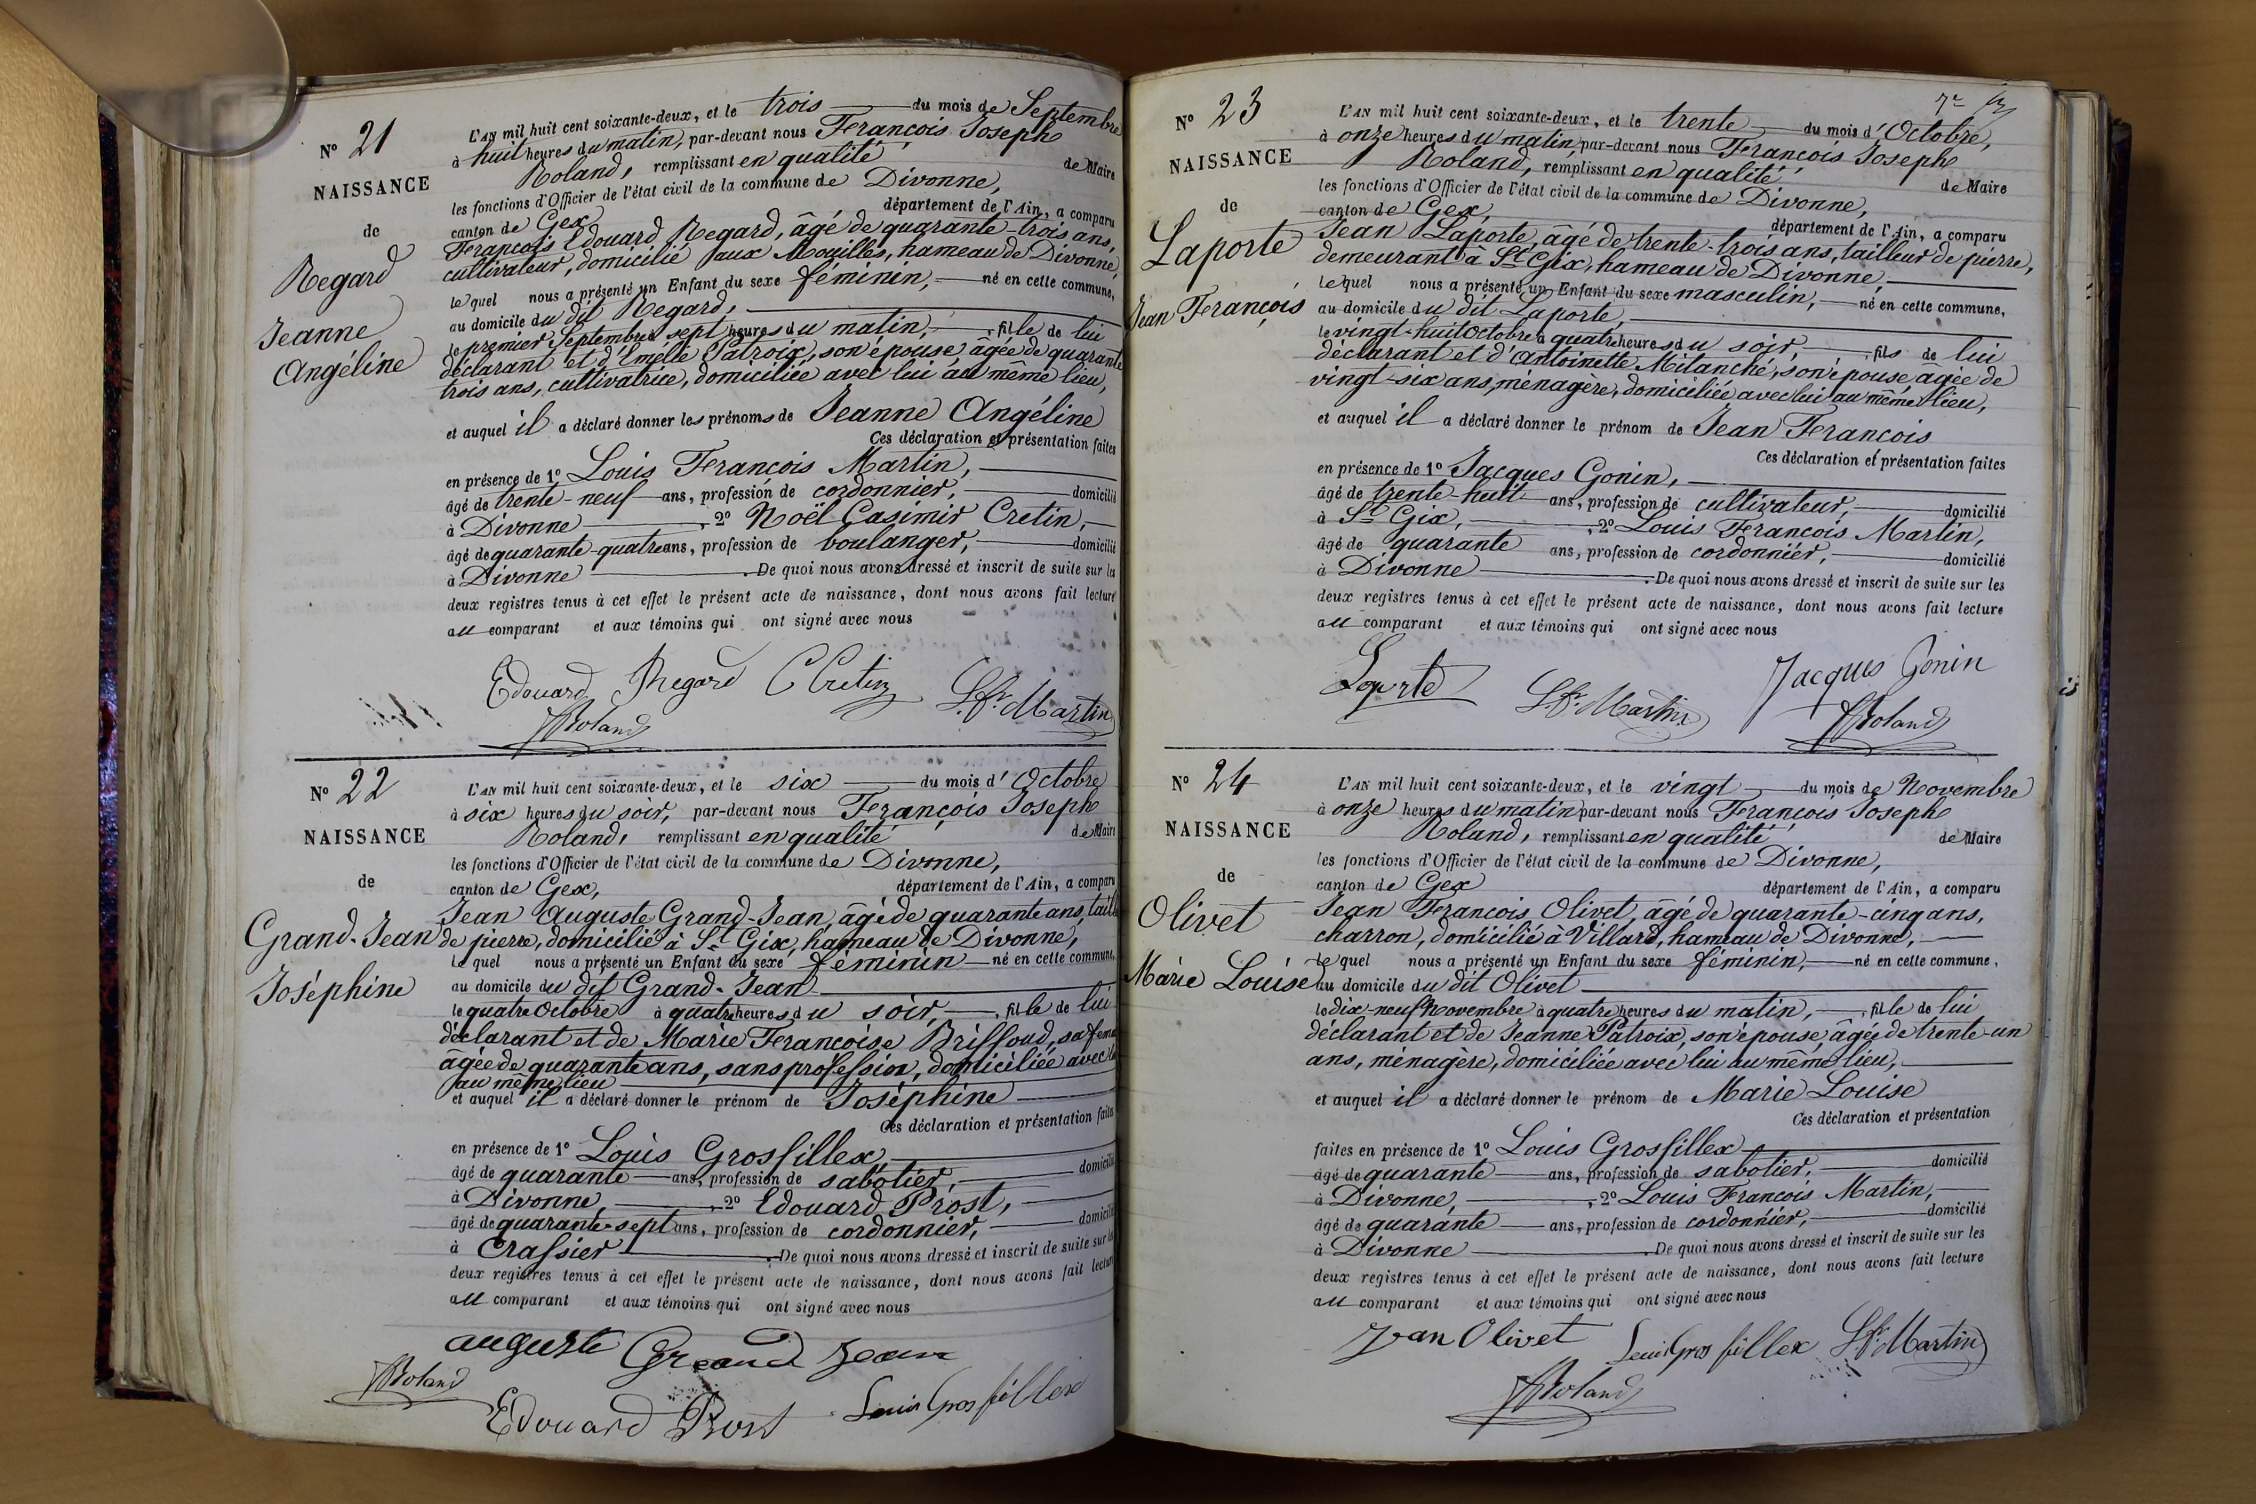 N° 21
NAISSANCE
de
Regard
Jeanne
Angéline
L'AN mil huit cent soixante-deux, et le trois du mois de Septembre
à huit heures du matin, par-devant nous François Joseph
Roland, remplissant en qualité de Maire
les fonctions d'Officier de l'état civil de la commune de Divonne,
canton de Gex, département de l'Ain, a comparu
François Edouard Regard, âgé de quarante-trois ans,
cultivateur, domicilié aux Mouilles, hameau de Divonne,
lequel nous a présenté un Enfant du sexe féminin, né en cette commune,
au domicile du dit Regard,
le premier Septembre à sept heures du matin, fille de lui
déclarant et d'Emélie Patroix, son épouse âgée de quarante
trois ans, cultivatrice, domiciliée avec lui au même lieu,
et auquel il a déclaré donner les prénoms de Jeanne Angéline
Ces déclaration et présentation faites
en présence de 1° Louis François Martin,
âgé de trente-neuf ans, profession de cordonnier, domicilié
à Divonne, 2° Noël Casimir Cretin,
âgé de quarante-quatre ans, profession de boulanger, domicilié
à Divonne. De quoi nous avons dressé et inscrit de suite sur les
deux registres tenus à cet effet le présent acte de naissance, dont nous avons fait lecture
au comparant et aux témoins qui ont signé avec nous
Edouard Regard C Cretin L. fs. Martin
Roland
N° 22
NAISSANCE
de
Grand-Jean
Joséphine
L'AN mil huit cent soixante-deux, et le six du mois d'Octobre
à six heures du soir, par-devant nous François Joseph
Roland, remplissant en qualité de Maire
les fonctions d'Officier de l'état civil de la commune de Divonne,
canton de Gex, département de l'Ain, a comparu
Jean Auguste Grand-Jean, âgé de quarante ans, taill
de pierre, domicilié à St Gix, hameau de Divonne,
lequel nous a présenté un Enfant du sexe féminin né en cette commune,
au domicile du dit Grand-Jean
le quatre Octobre à quatre heures du soir, fille de lui
déclarant et de Marie Françoise Briffoud, sa femme
âgée de quarante ans, sans profession, domiciliée avec lui
au même lieu
et auquel il a déclaré donner le prénom de Joséphine
Ces déclaration et présentation faites
en présence de 1° Louis Grosfillex,
âgé de quarante ans, profession de sabotier, domicilié
à Divonne, 2° Edouard Prost,
âgé de quarante-sept ans, profession de cordonnier, domicilié
à Crassier. De quoi nous avons dressé et inscrit de suite sur les
deux registres tenus à cet effet le présent acte de naissance, dont nous avons fait lecture
au comparant et aux témoins qui ont signé avec nous
auguste Grand Jean
Roland
Edouard Prost Louis Gros fillex
N° 23
NAISSANCE
de
Laporte
Jean François
L'AN mil huit cent soixante-deux, et le trente du mois d'Octobre,
à onze heures du matin, par-devant nous François Joseph
Roland, remplissant en qualité de Maire
les fonctions d'Officier de l'état civil de la commune de Divonne,
canton de Gex, département de l'Ain, a comparu
Jean Laporte, âgé de trente-trois ans, tailleur de pierre,
demeurant à St Gix, hameau de Divonne,
lequel nous a présenté un Enfant du sexe masculin, né en cette commune,
au domicile du dit Laporte,
le vingt-huit Octobre à quatre heures du soir, fils de lui
déclarant et d'Antoinette Mitanché, son épouse âgée de
vingt-six ans, ménagère, domiciliée avec lui au même lieu,
et auquel il a déclaré donner le prénom de Jean François
Ces déclaration et présentation faites
en présence de 1° Jacques Gonin,
âgé de trente-huit ans, profession de cultivateur, domicilié
à St Gix, 2° Louis François Martin,
âgé de quarante ans, profession de cordonnier, domicilié
à Divonne. De quoi nous avons dressé et inscrit de suite sur les
deux registres tenus à cet effet le présent acte de naissance, dont nous avons fait lecture
au comparant et aux témoins qui ont signé avec nous
Laporte L. fs. Martin Jacques Gonin
Roland
N° 24
NAISSANCE
de
Olivet
Marie Louise
L'AN mil huit cent soixante-deux, et le vingt du mois de Novembre
à onze heures du matin par-devant nous François Joseph
Roland, remplissant en qualité de Maire
les fonctions d'Officier de l'état civil de la commune de Divonne,
canton de Gex département de l'Ain, a comparu
Jean François Olivet, âgé de quarante-cinq ans,
charron, domicilié à Villard, hameau de Divonne,
lequel nous a présenté un Enfant du sexe féminin, né en cette commune,
au domicile du dit Olivet
le dix-neuf Novembre à quatre heures du matin, fille de lui
déclarant et de Jeanne Patroix, son épouse, âgée de trente-un
ans, ménagère, domiciliée avec lui au même lieu,
et auquel il a déclaré donner le prénom de Marie Louise
Ces déclaration et présentation
faites en présence de 1° Louis Grosfillex
âgé de quarante ans, profession de sabotier, domicilié
à Divonne, 2° Louis François Martin,
âgé de quarante ans, profession de cordonnier, domicilié
à Divonne. De quoi nous avons dressé et inscrit de suite sur les
deux registres tenus à cet effet le présent acte de naissance, dont nous avons fait lecture
au comparant et aux témoins qui ont signé avec nous
Jean Olivet Louis Gros fillex L. fs. Martin
Roland